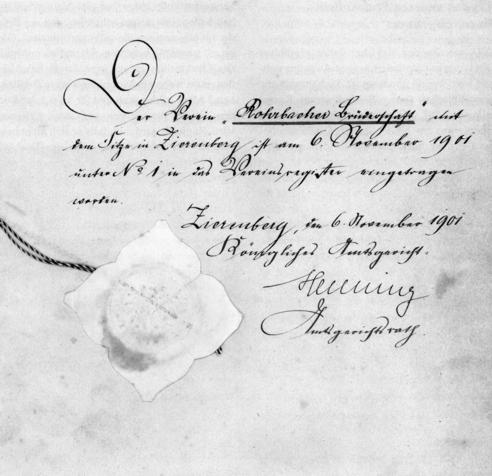 Der Verein „Rohrbacher Brüderschaft“ mit
dem Sitze in Zierenberg ist am 6. November 1901
unter No 1 in das Vereinsregister eingetragen
worden.
Zierenberg, den 6. November 1901
Königliches Amtsgericht.
Henning
Amtsgerichtsrath.